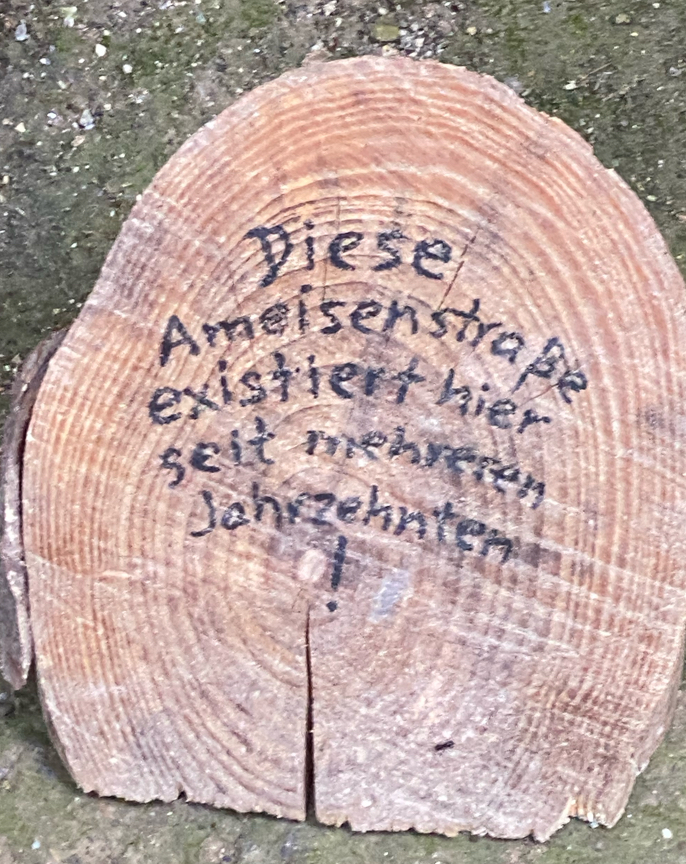 Diese
Ameisenstraße
existiert hier
seit mehreren
Jahrzehnten
!